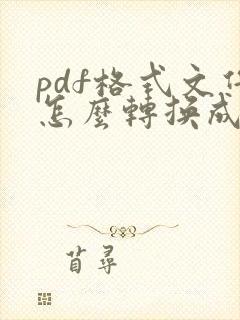 pdf格式文件
怎麼轉換成
苜尋